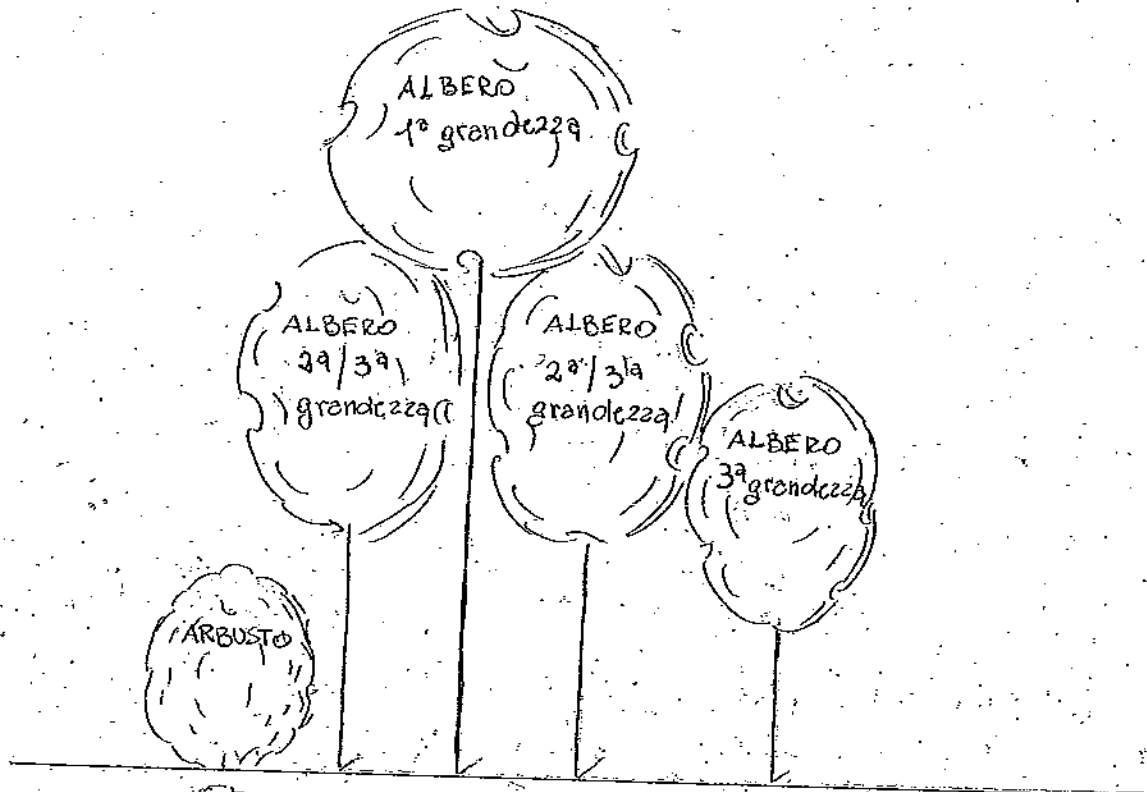 ALBERO
1ª grandezza
ALBERO
2ª/3ª
grandezza
ALBERO
2ª/3ª
grandezza
ALBERO
3ª grandezza
ARBUSTO